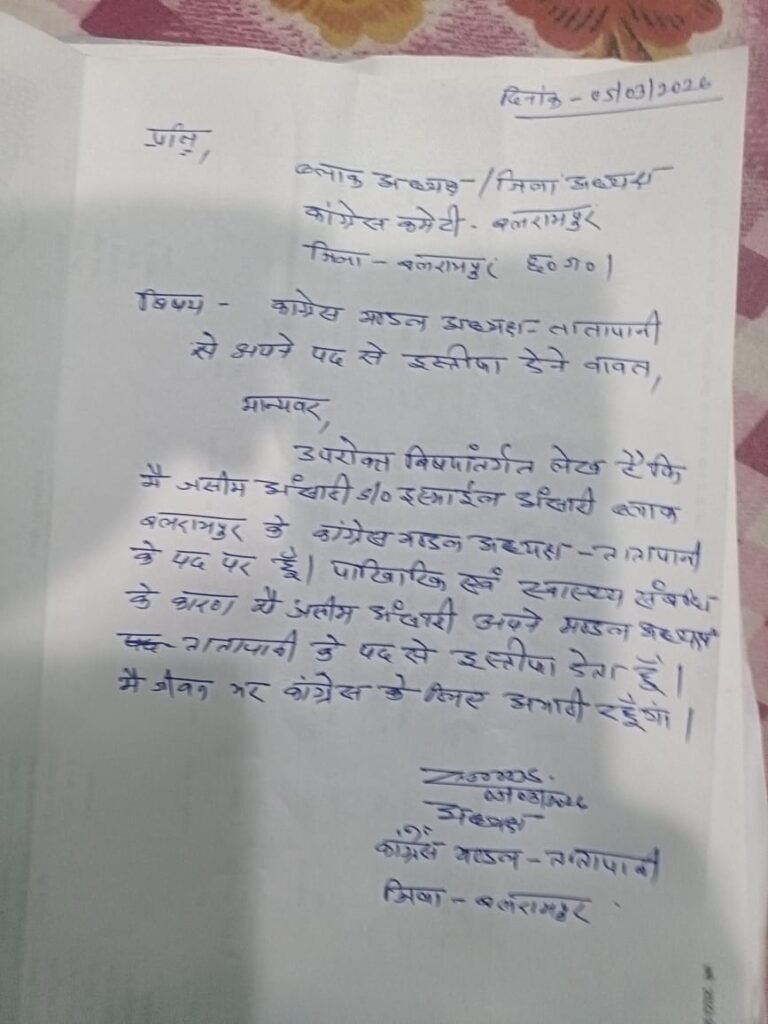 दिनांक - 05/03/2026
प्रति,
ब्लाक अध्यक्ष / जिला अध्यक्ष
कांग्रेस कमेटी - बलरामपुर
जिला - बलरामपुर छ०ग०।
बिषय - कांग्रेस मण्डल अध्यक्ष - तातापानी
से अपने पद से इस्तीफा देने बावत,
मान्यवर,
उपरोक्त बिषयांतर्गत लेख है कि
मै असीम अंसारी S/O इस्माईल अंसारी ब्लाक
बलरामपुर के कांग्रेस मण्डल अध्यक्ष - तातापानी
के पद पर हूँ। पारिवारिक एवं स्वास्थ्य संबन्ध
के कारण मै असीम अंसारी अपने मण्डल अध्यक्ष
तातापानी के पद से इस्तीफा देता हूँ।
मै जीवन भर कांग्रेस के लिए अभारी रहूँगा।
अध्यक्ष
कांग्रेस मण्डल - तातापानी
जिला - बलरामपुर